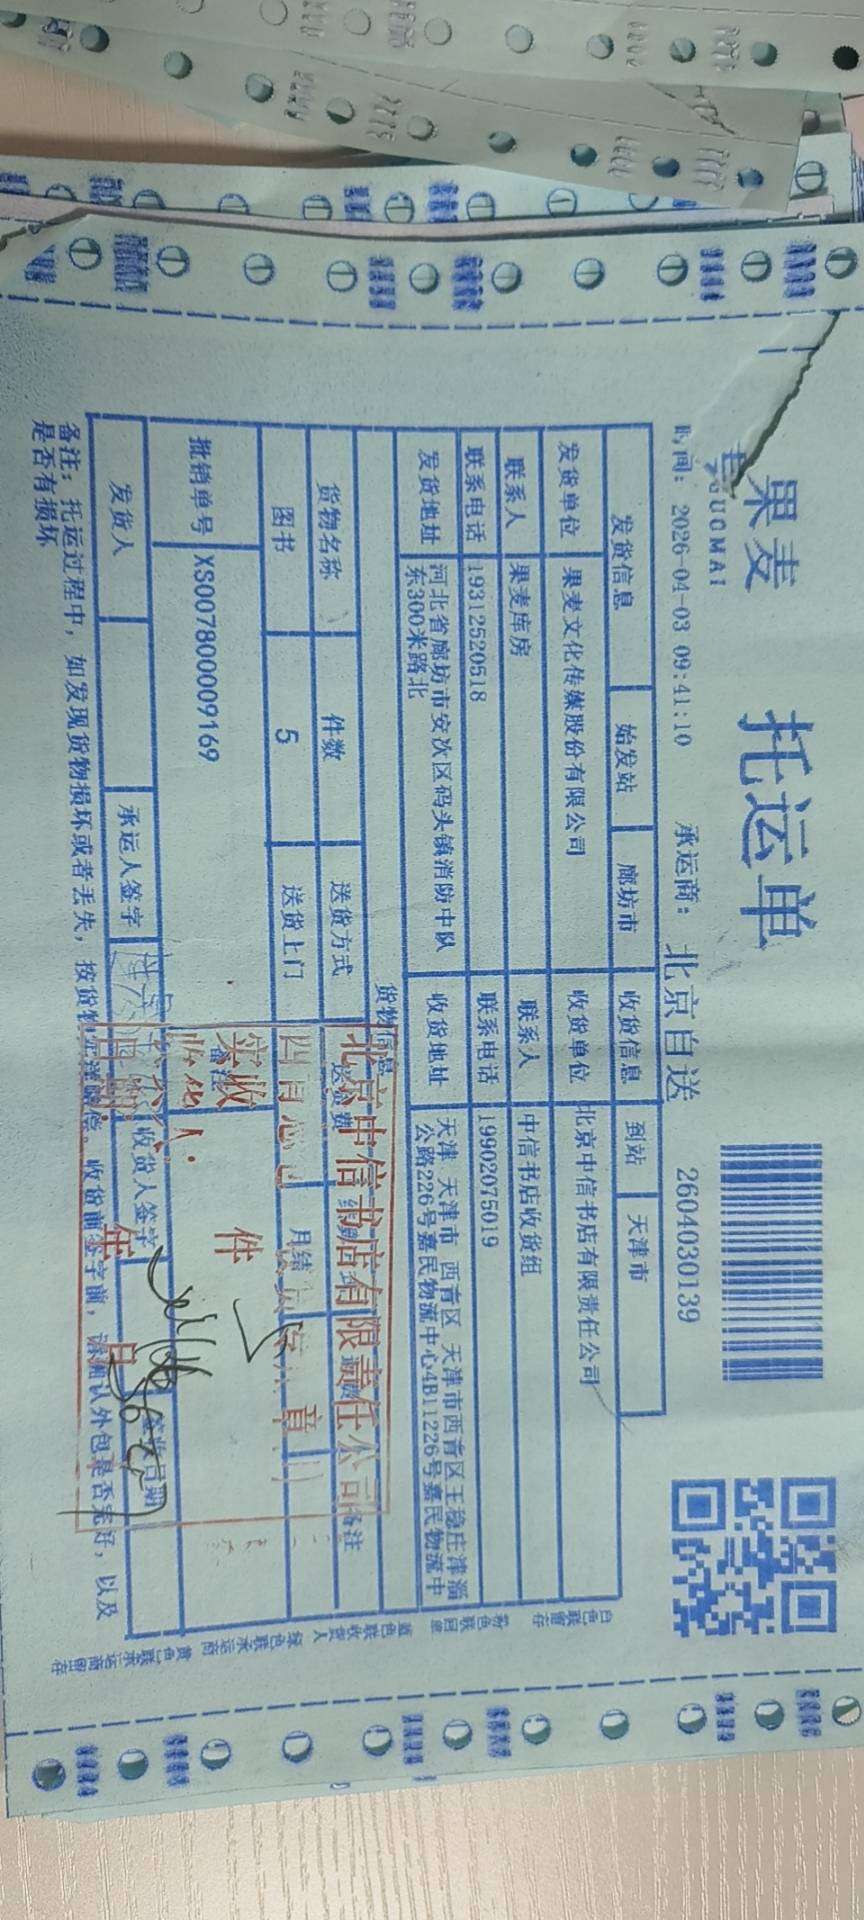 果麦
GUOMAI
托运单
时间: 2026-04-03 09:41:10 承运商: 北京自送 2604030139
发货信息 始发站 廊坊市 收货信息 到站 天津市
发货单位 果麦文化传媒股份有限公司 收货单位 北京中信书店有限责任公司
联系人 果麦库房 联系人 中信书店收货组
联系电话 19312520518 联系电话 19902075019
发货地址 河北省廊坊市安次区码头镇消防中队东300米路北 收货地址 天津 天津市 西青区 天津市西青区王稳庄津淄公路226号嘉民物流中心4B11226号嘉民物流中
货物信息
货物名称 件数 送货方式 送货费 备注
图书 5 送货上门 月结
批销单号 XS00780009169
发货人 承运人签字 收货人签字 签收日期
备注: 托运过程中, 如发现货物损坏或者丢失, 按货物 收货前签字前, 请确认外包是否完好, 以及
是否有损坏
北京中信书店有限责任公司
实收 件
收货人:
年 月
白色联留存 粉色联回单 蓝色联收货人 绿色联承运商 黄色联承运商留存